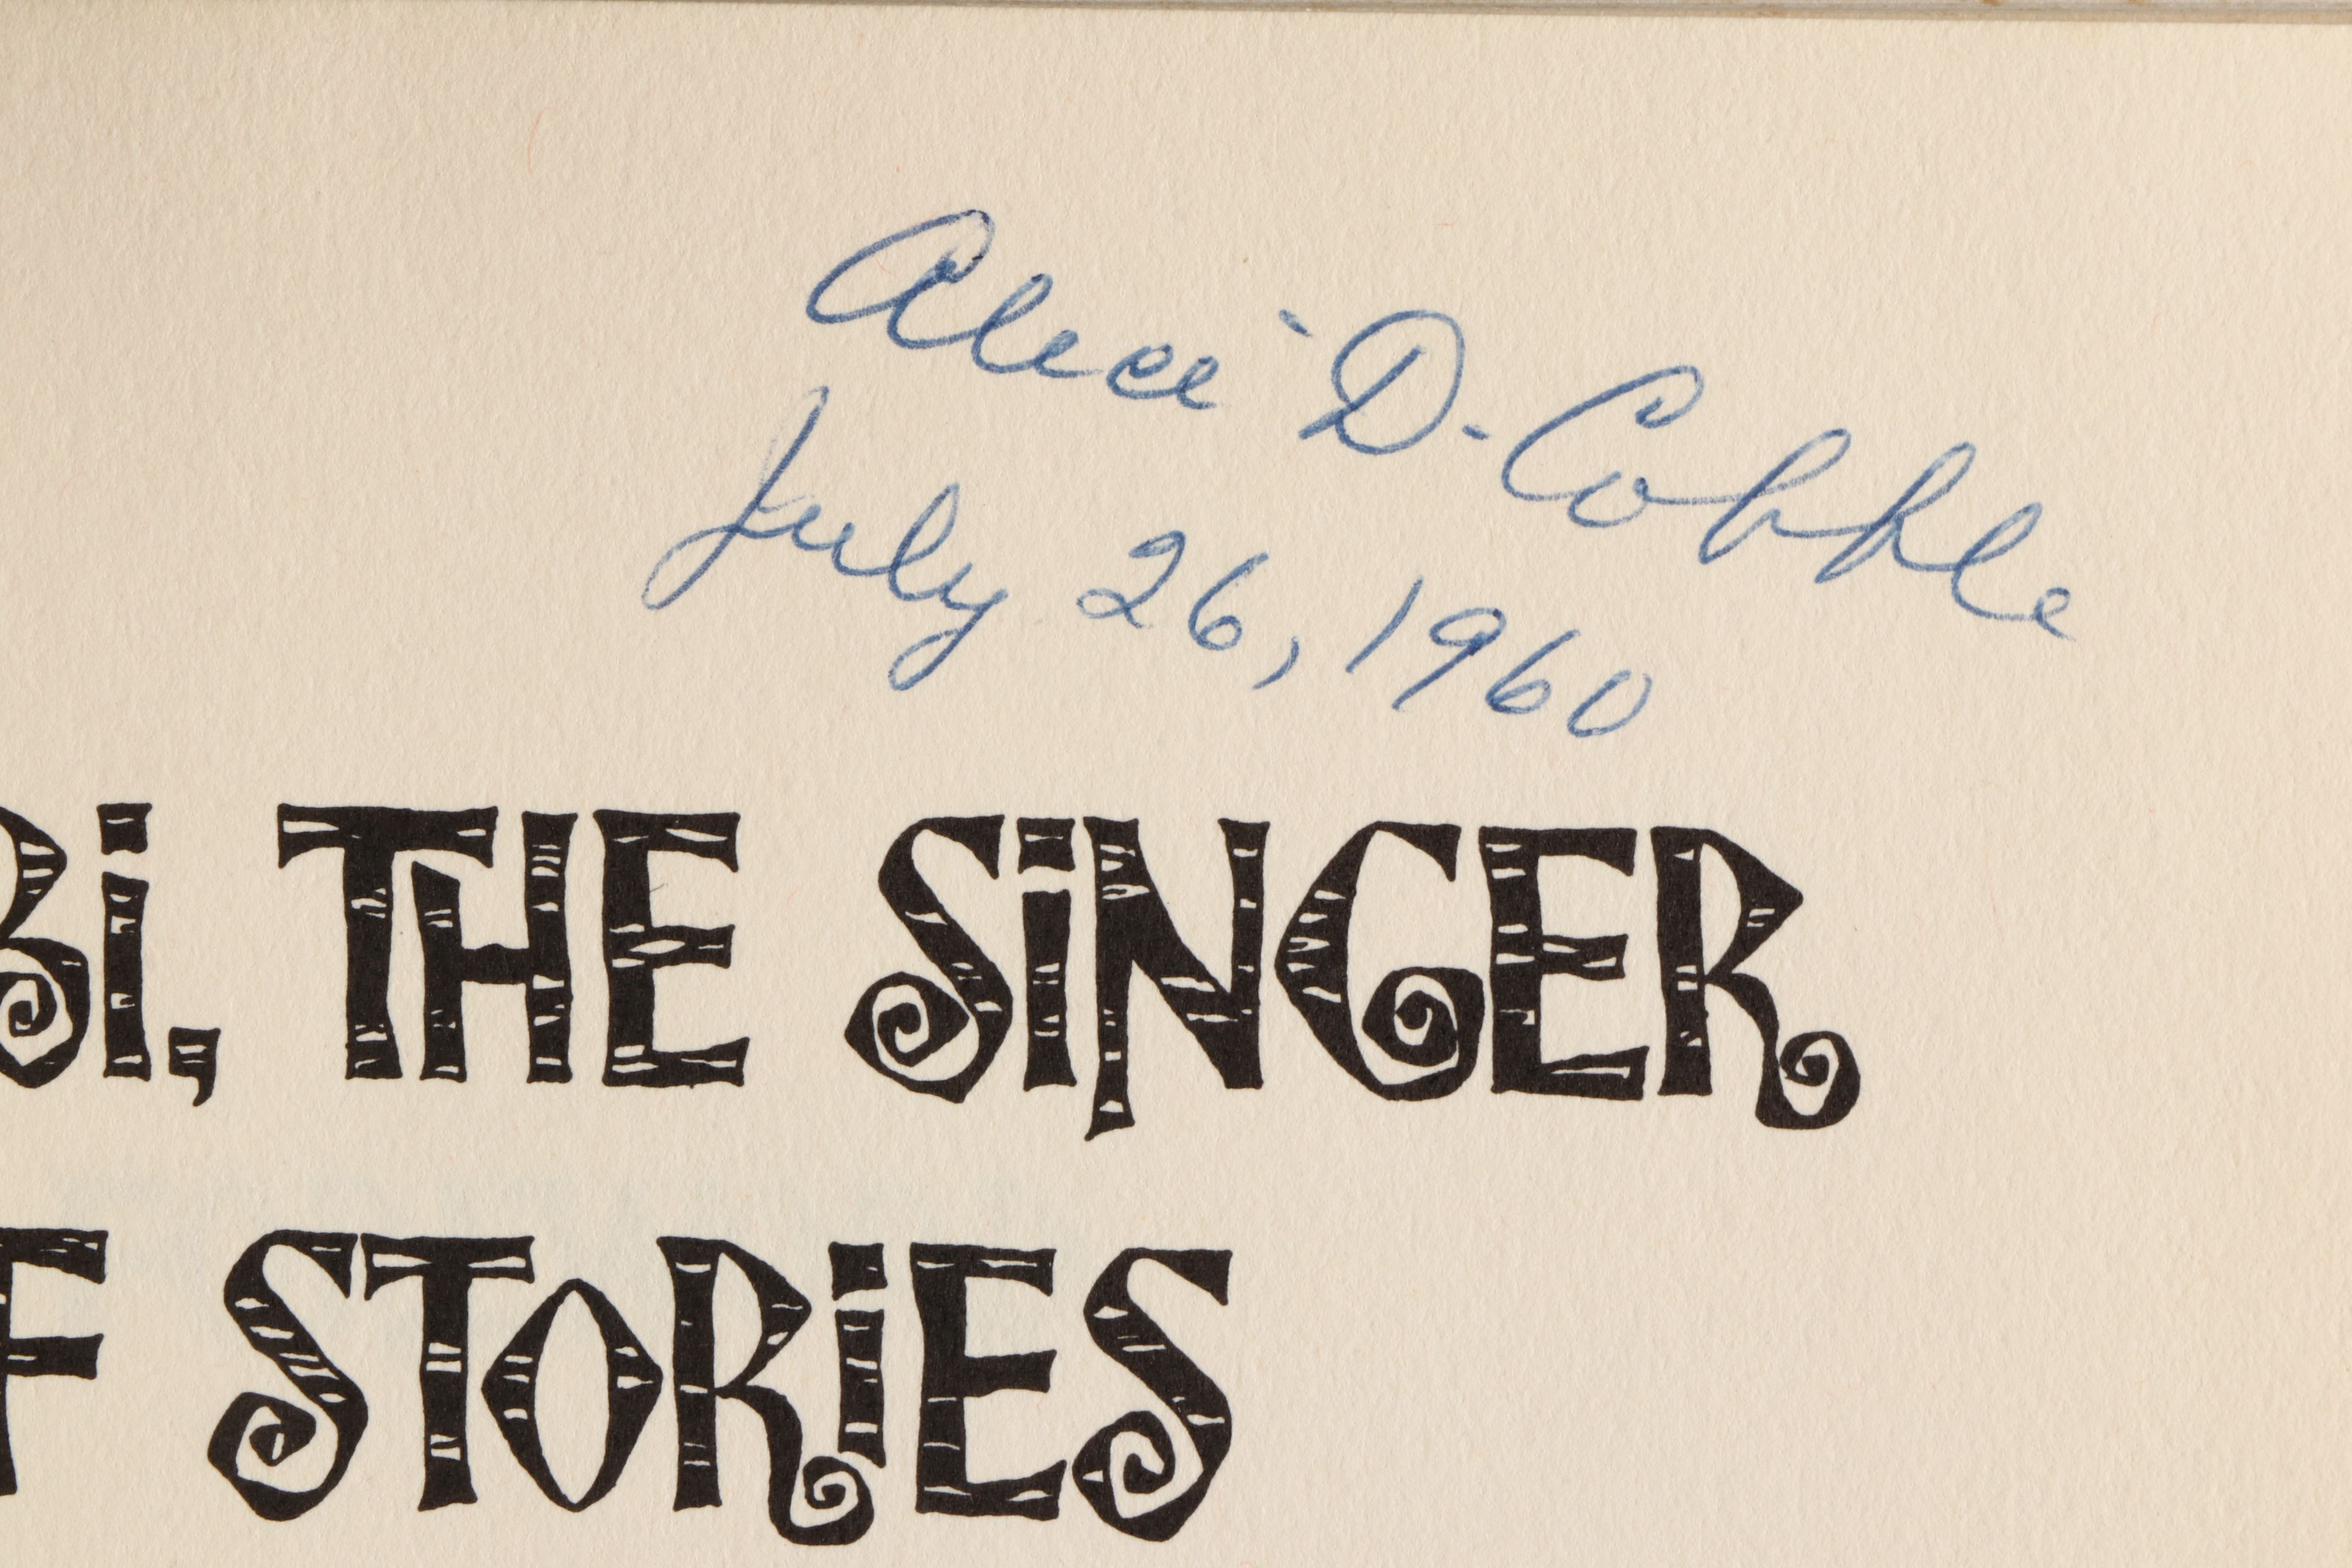 Alice D. Cobble
July 26, 1960
Bi, THE SiNGER
F STORiES